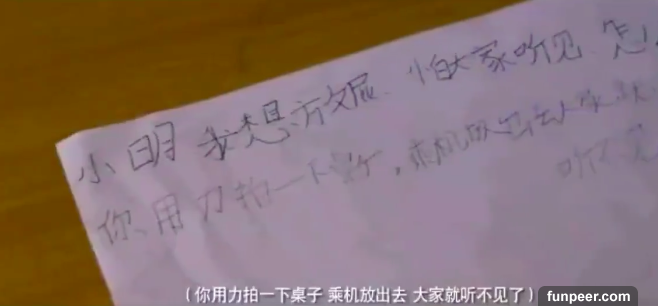 小明 我想放屁 怕大家听见 怎
你用力拍一下桌子,乘机放出去大家就
听不见
(你用力拍一下桌子 乘机放出去 大家就听不见了)
funpeer.com